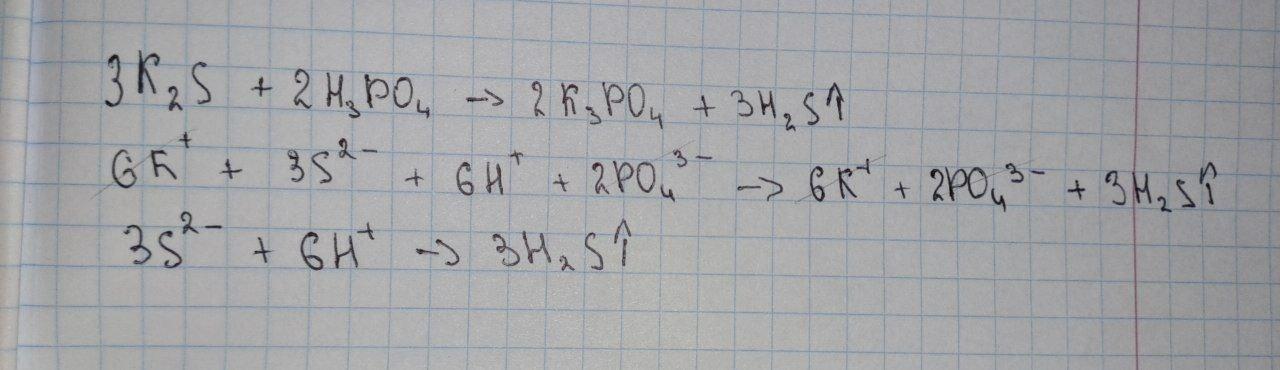 3K₂S + 2H₃PO₄ → 2K₃PO₄ + 3H₂S↑
6K⁺ + 3S²⁻ + 6H⁺ + 2PO₄³⁻ → 6K⁺ + 2PO₄³⁻ + 3H₂S↑
3S²⁻ + 6H⁺ → 3H₂S↑